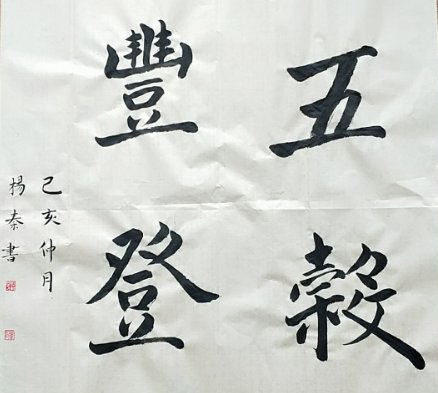 五穀
豐登
己亥仲月
楊秦書